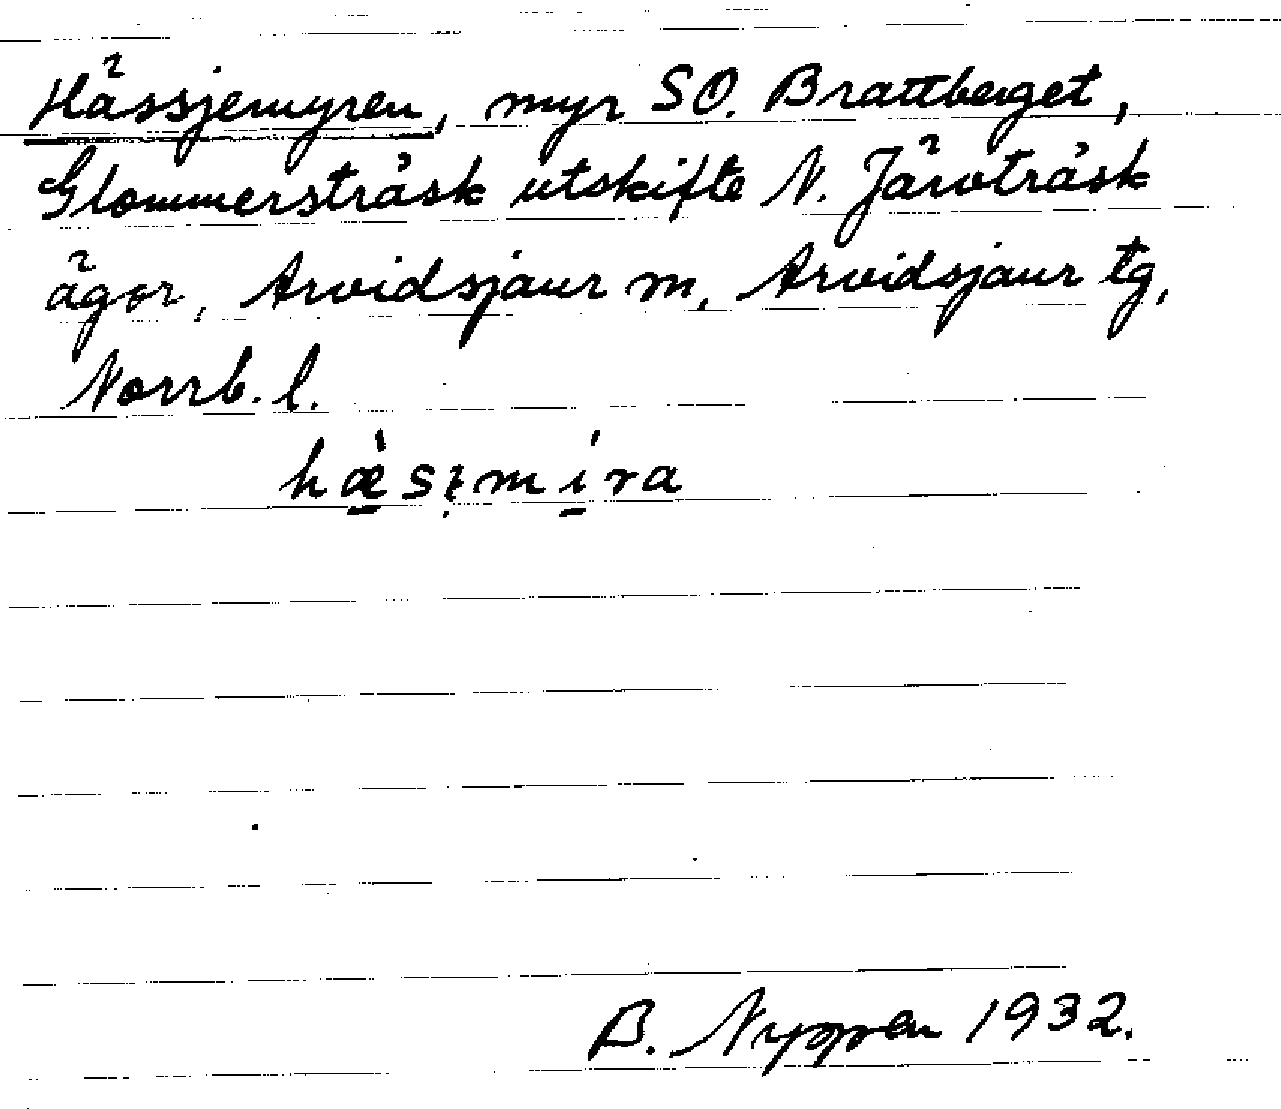 Hässjemyren, myr SO. Brattberget,
Glommersträsk utskifte N. Järvträsk
ägor, Arvidsjaur sn, Arvidsjaur tg,
Norrb. l.
B. Nyppen 1932.